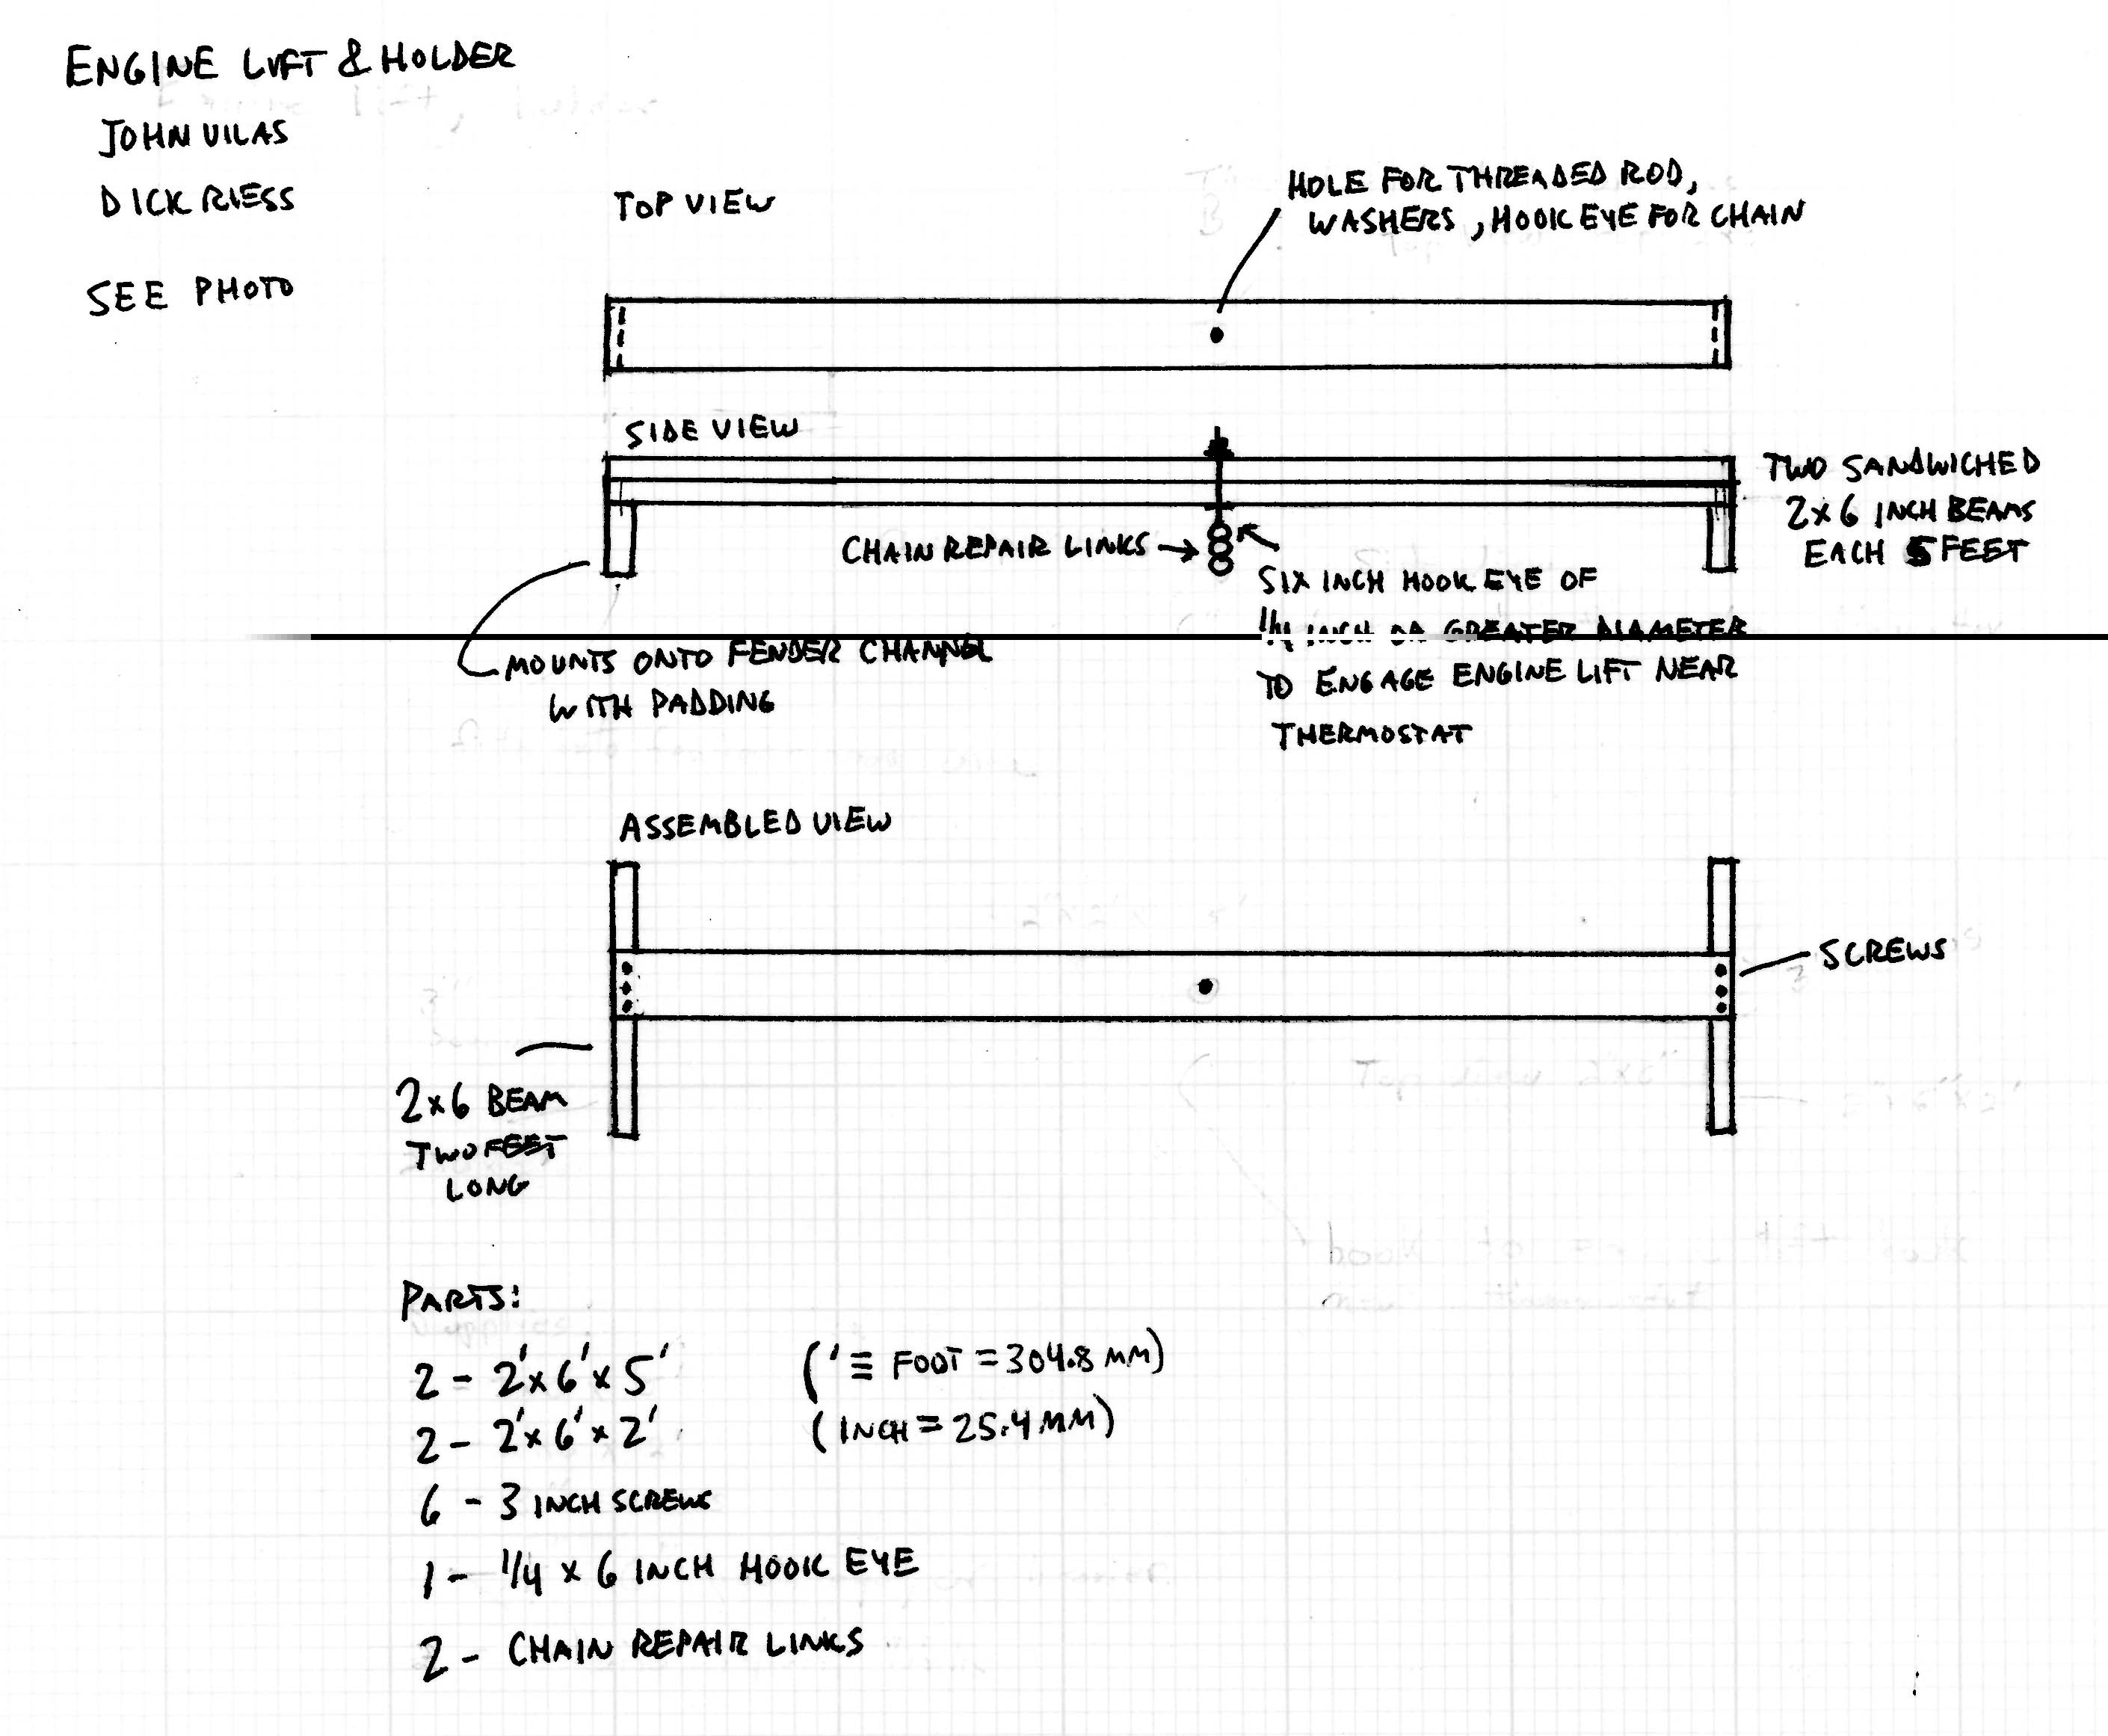 ENGINE LIFT & HOLDER
JOHN VILAS
DICK RIESS
SEE PHOTO
TOP VIEW
HOLE FOR THREADED ROD,
WASHERS, HOOK EYE FOR CHAIN
SIDE VIEW
TWO SANDWICHED
2x6 INCH BEAMS
EACH 5 FEET
CHAIN REPAIR LINKS
SIX INCH HOOK EYE OF
1/4 INCH OR GREATER DIAMETER
TO ENGAGE ENGINE LIFT NEAR
THERMOSTAT
MOUNTS ONTO FENDER CHANNEL
WITH PADDING
ASSEMBLED VIEW
SCREWS
2x6 BEAM
TWO FEET
LONG
PARTS:
2 - 2'x6'x5' (' ≡ FOOT = 304.8 MM)
2 - 2'x6'x2' (INCH = 25.4 MM)
6 - 3 INCH SCREWS
1 - 1/4 x 6 INCH HOOK EYE
2 - CHAIN REPAIR LINKS